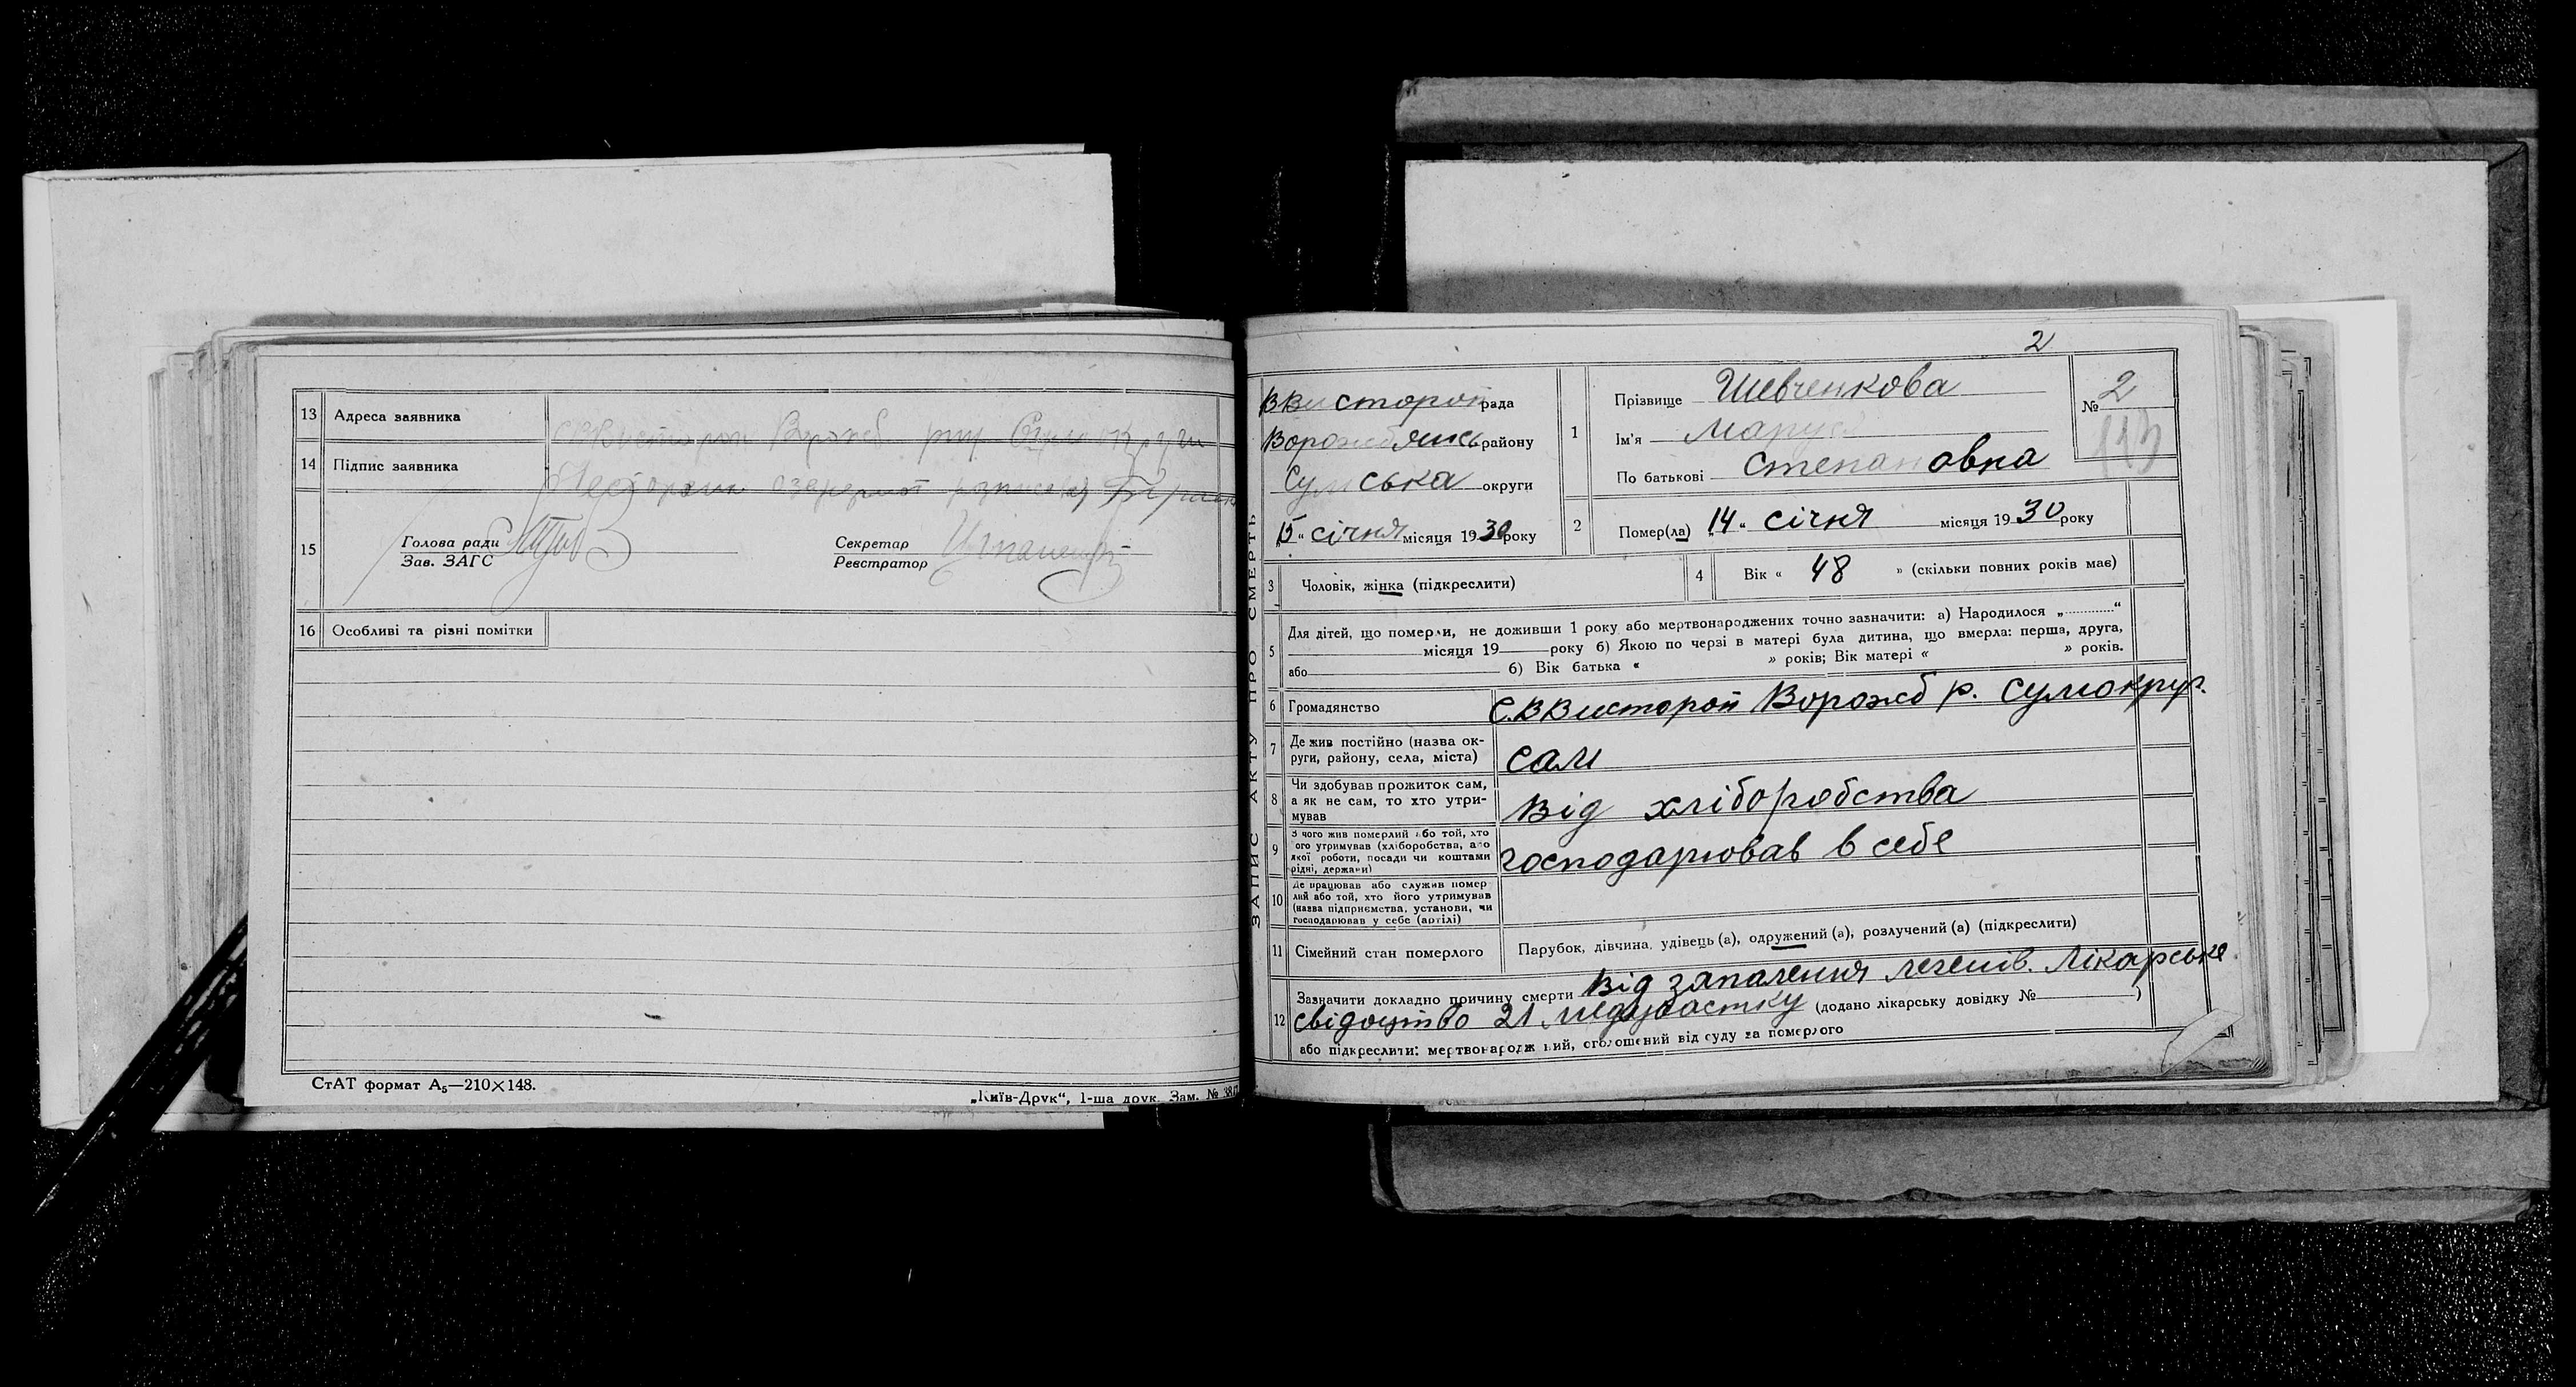 13 Адреса заявника
14 Підпис заявника
15 Голова ради
Зав. ЗАГС
Секретар
Реєстратор
16 Особливі та різні помітки
СтАТ формат А₅—210×148.
„Київ-Друк“, 1-ша друк. Зам. №
ЗАПИС АКТУ ПРО СМЕРТЬ
2
рада
району
Сумська округи
15 “ січня місяця 1930 року
1 Прізвище Шевченкова
Ім'я Маруся
По батькові Степановна
№ 2
2 Помер(ла) „14“ січня місяця 1930 року
3 Чоловік, жінка (підкреслити)
4 Вік « 48 » (скільки повних років має)
5 Для дітей, що померли, не доживши 1 року або мертвонароджених точно зазначити: а) Народилося „ “
місяця 19 року б) Якою по черзі в матері була дитина, що вмерла: перша, друга,
або б) Вік батька « » років; Вік матері « » років.
6 Громадянство С. ВВистороп Ворожб р. Сумокруг.
7 Де жив постійно (назва ок-
руги, району, села, міста) сам
8 Чи здобував прожиток сам,
а як не сам, то хто утри-
мував Від хліборобства
9 З чого жив померлий або той, хто
його утримував (хліборобства, або
якої роботи, посади чи коштами
рідні, держави) господарював в себе
10 Де працював або служив помер
лий або той, хто його утримував
(назва підприємства, установи, чи
господарював у себе (артілі)
11 Сімейний стан померлого Парубок, дівчина, удівець (а), одружений (а), розлучений (а) (підкреслити)
12 Зазначити докладно причину смерти Від запалення легенів. Лікарське
свідоцтво 21 медучастку (додано лікарську довідку № )
або підкреслити: мертвонароджений, оголошений від суду за померлого